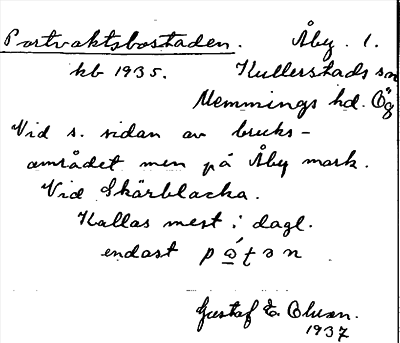 Portvaktsbostaden. Åby. 1.
kb 1935. Kullerstads sn
Memmings hd. Ög
Vid s. sidan av bruks-
området men på Åby mark.
Vid Skärblacka.
Kallas mest i dagl.
endast
Gustaf E. Olson.
1937